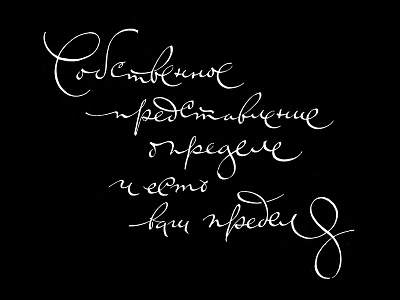 Собственное
представление
о пределе
и есть
ваш предел